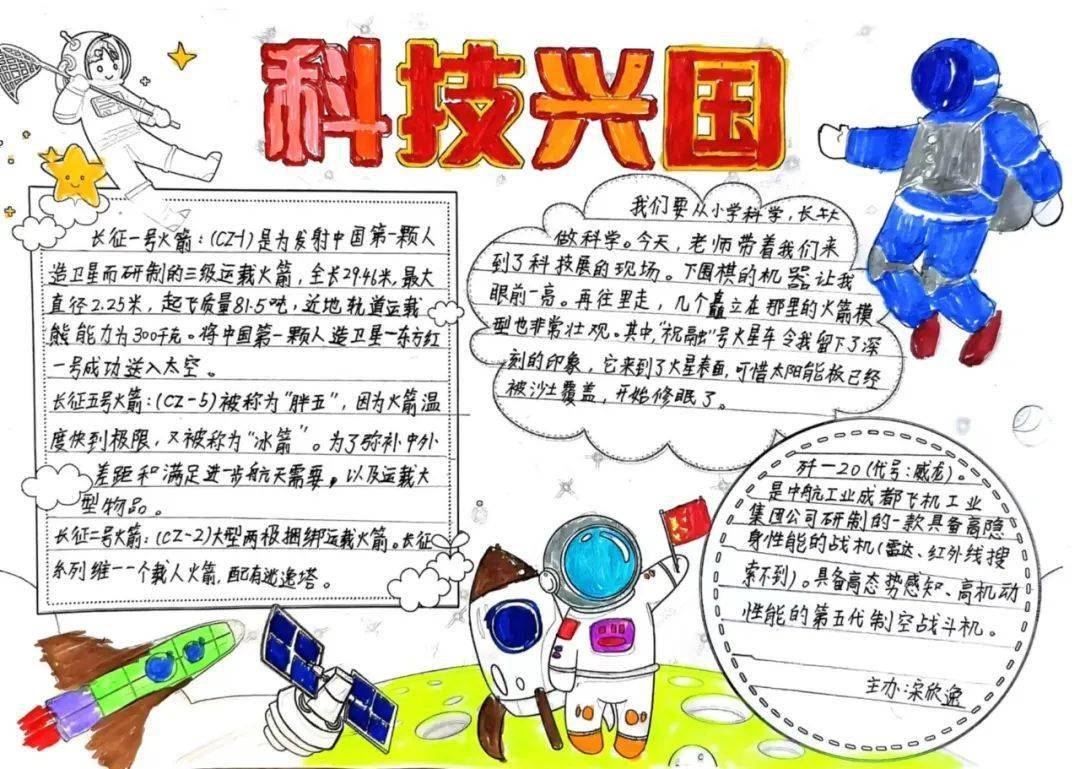 科技兴国
长征一号火箭：(CZ-1)是为发射中国第一颗人
造卫星而研制的三级运载火箭，全长29.46米，最大
直径2.25米，起飞质量81.5吨，近地轨道运载
能能力为300千克。将中国第一颗人造卫星一东方红
一号成功送入太空。
长征五号火箭：(CZ-5)被称为“胖五”，因为火箭温
度快到极限，又被称为“冰箭”。为了弥补中外
差距和满足进步航天需要，以及运载大
型物品。
长征二号火箭：(CZ-2)大型两极捆绑运载火箭。长征
系列维一一个载人火箭，配有逃逸塔。
我们要从小学科学，长大
做科学。今天，老师带着我们来
到了科技展的现场。下围棋的机器让我
眼前一亮。再往里走，几个矗立在那里的火箭模
型也非常壮观。其中，“祝融”号火星车令我留下了深
刻的印象，它来到了火星表面，可惜太阳能板已经
被沙土覆盖，开始修眠了。
歼一20(代号：威龙)。
是中航工业成都飞机工业
集团公司研制的一款具备高隐
身性能的战机(雷达、红外线搜
索不到)。具备高态势感知、高机动
性能的第五代制空战斗机。
主办：欣